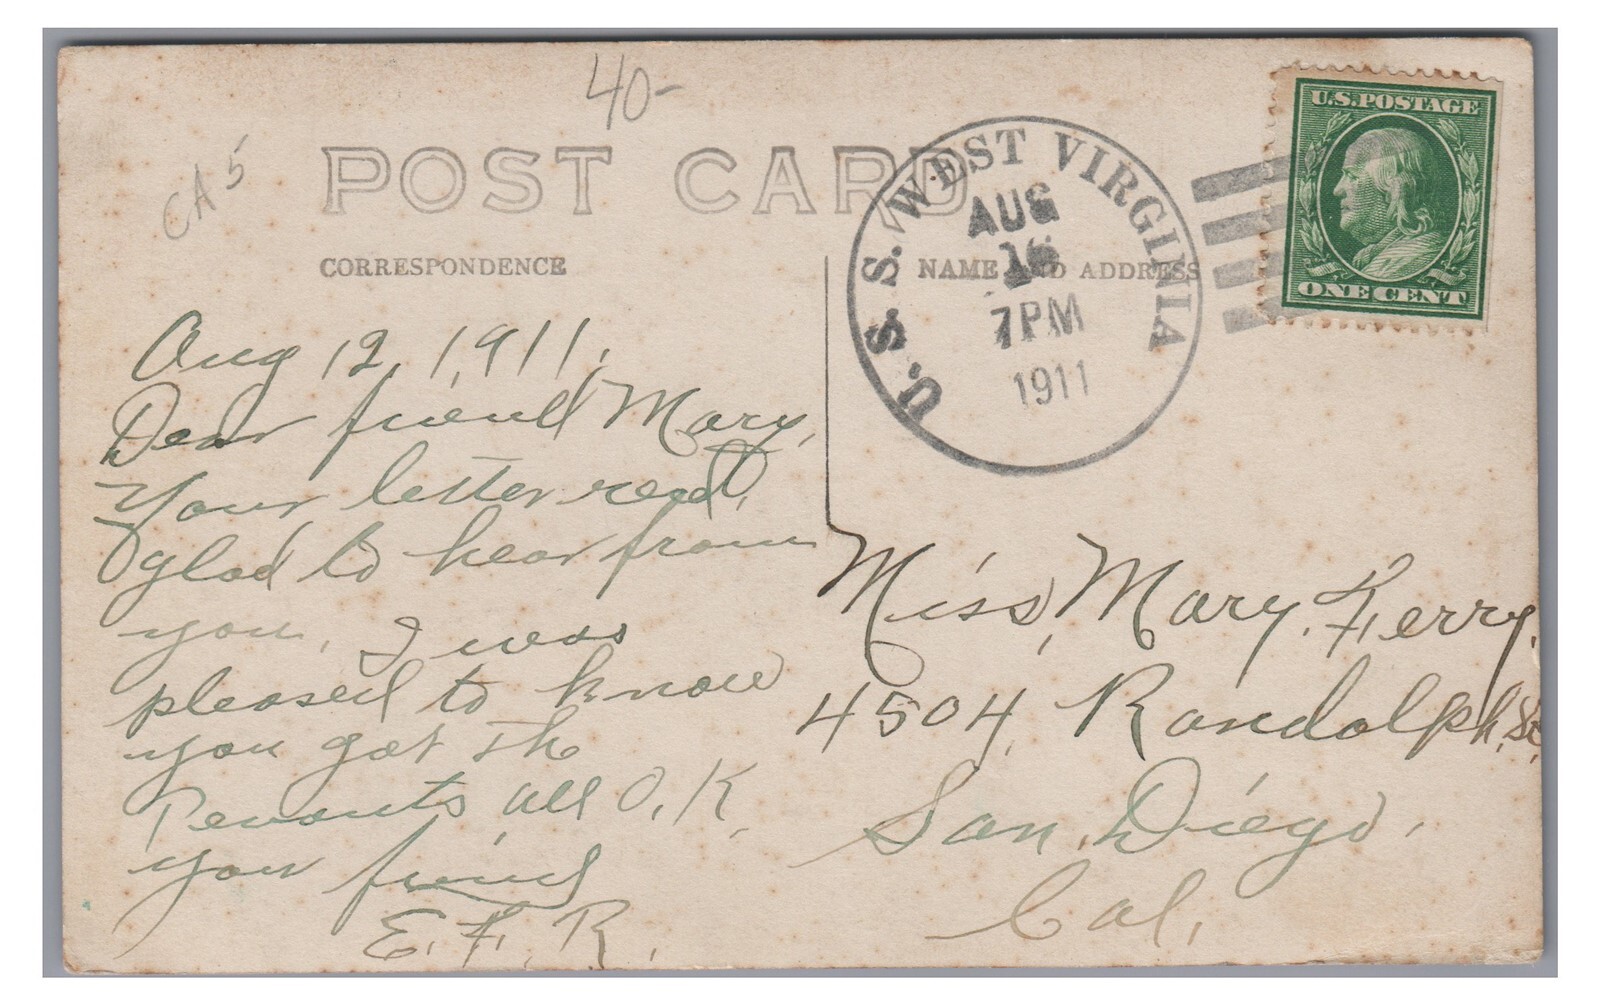 40-
CA5
POST CARD
CORRESPONDENCE
NAME AND ADDRESS
U.S.S. WEST VIRGINIA
AUG
7PM
1911
U.S. POSTAGE
ONE CENT
Aug 12, 1911.
Dear friend Mary,
Your letter recd,
glad to hear from
you, I was
pleased to know
you got the
Penants all O.K.
your friend
E. F. R.
Miss, Mary. Ferry.
4504, Randolph, St.
San, Diego,
Cal,